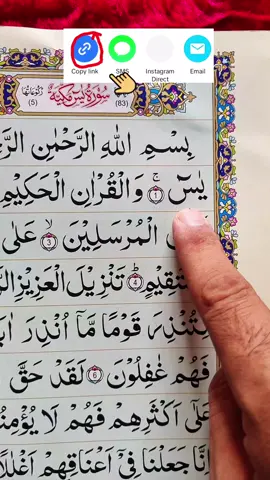 Copy link
SMS
Instagram Direct
Email
سُوْرَةُ يٰسٓ مَكِّيَّةٌ
(5)
(83)
بِسْمِ اللهِ الرَّحْمٰنِ
يٰسٓ ۚ ١ وَالْقُرْاٰنِ الْحَكِيْمِ
الْمُرْسَلِيْنَ ۙ 3 عَلٰى
4 تَنْزِيْلَ الْعَزِيْزِ
لِتُنْذِرَ قَوْمًا مَّآ اُنْذِرَ
فَهُمْ غٰفِلُوْنَ 6 لَقَدْ حَقَّ
عَلٰٓى اَكْثَرِهِمْ فَهُمْ لَا
اِنَّا جَعَلْنَا فِيْٓ اَعْنَاقِهِمْ